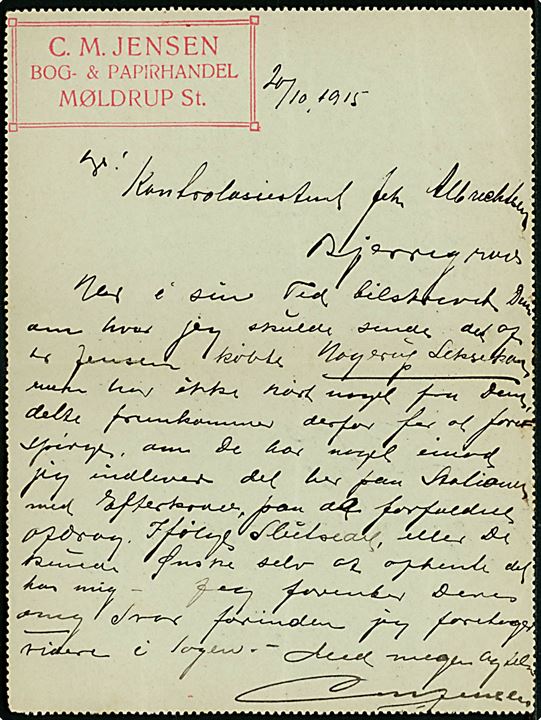 C. M. JENSEN
BOG- & PAPIRHANDEL
MØLDRUP St.
20/10 1915
Hr!
Kontrolassistent Albrechtsen
Bjerregrav
Har i sin Tid tilskrevet Dem
om hvor jeg skulde sende det af
Hr Jensen købte Leksikon
men har ikke hørt noget fra Dem,
dette fremkommer derfor for at fore
spørge, om De har noget imod
jeg indleverer det her paa Stationen
med Efterkrav, paa de forfaldne
Afdrag. Ifølge Slutseddel, eller De
kunde Ønske selv at afhente det
hos mig – Jeg forventer Deres
omg Svar forinden jeg foretager
videre i Sagen. – Med megen Agtelse
C M Jensen